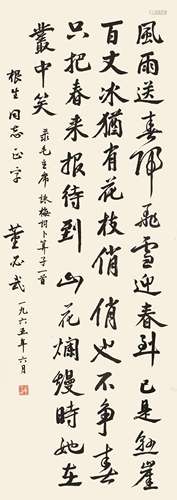 風雨送春歸飛雪迎春到已是懸崖
百丈冰猶有花枝俏俏也不爭春
只把春來报待到山花爛熳時她在
叢中笑
录毛主席詠梅詞卜算子一首
根生同志正字
董必武
一九六五年六月